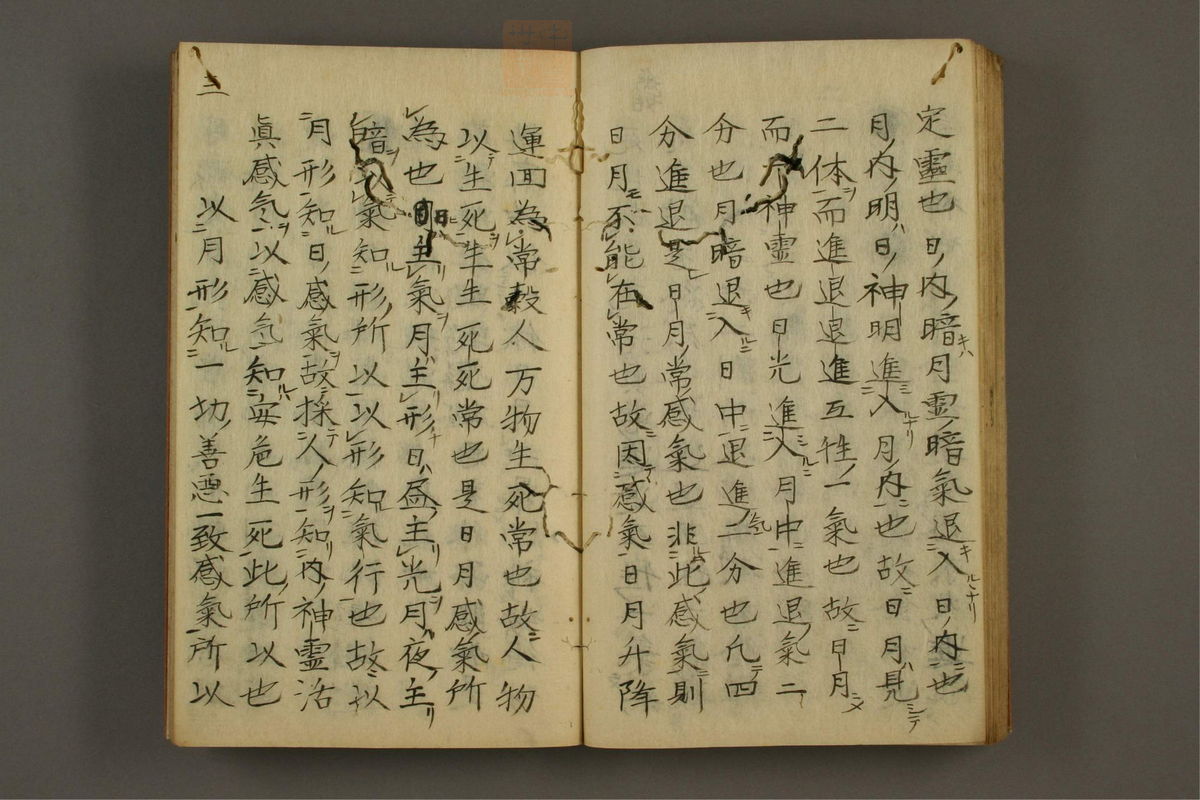 定靈也日ノ内ノ暗キハ月霊ノ暗氣退キ入ルナリ日ノ内ニ也
月ノ内ノ明ハ日ノ神明進ミ入ルナリ月ノ内ニ也故ニ日月ハ見シテ
二体ヲ而進退退進互性ノ一氣也故ニ日月ニメ
而神靈也日光進ミ入ルニ月中ニ進退ノ氣二
分也月暗退キ入ルニ日中ニ退進ノ氣二分也凡テ四
分進退是レ日月ノ常感氣也非レハ此ノ感氣ニ則
日月モ不能在常也故ニ因テ感氣ニ日月升降
運回為常穀人万物生死常也故ニ人物
以テ生死ヲ生生死死常也是日月感氣ノ所
為也日ハ主リ氣ヲ月ハ主リ形ヲ日ハ昼主リ光ヲ月ハ夜ル主リ
暗ヲ以氣知ル形ヲ所以以形知ル氣行也故ニ以
月形知ル日ノ感氣ヲ故ニ採テ人ノ形ヲ知リ内ノ神靈活
眞感氣ヲ以感氣知ルハ安危生死ヲ此ノ所以也
以月形知ル一切ノ善悪一致感氣所以
三